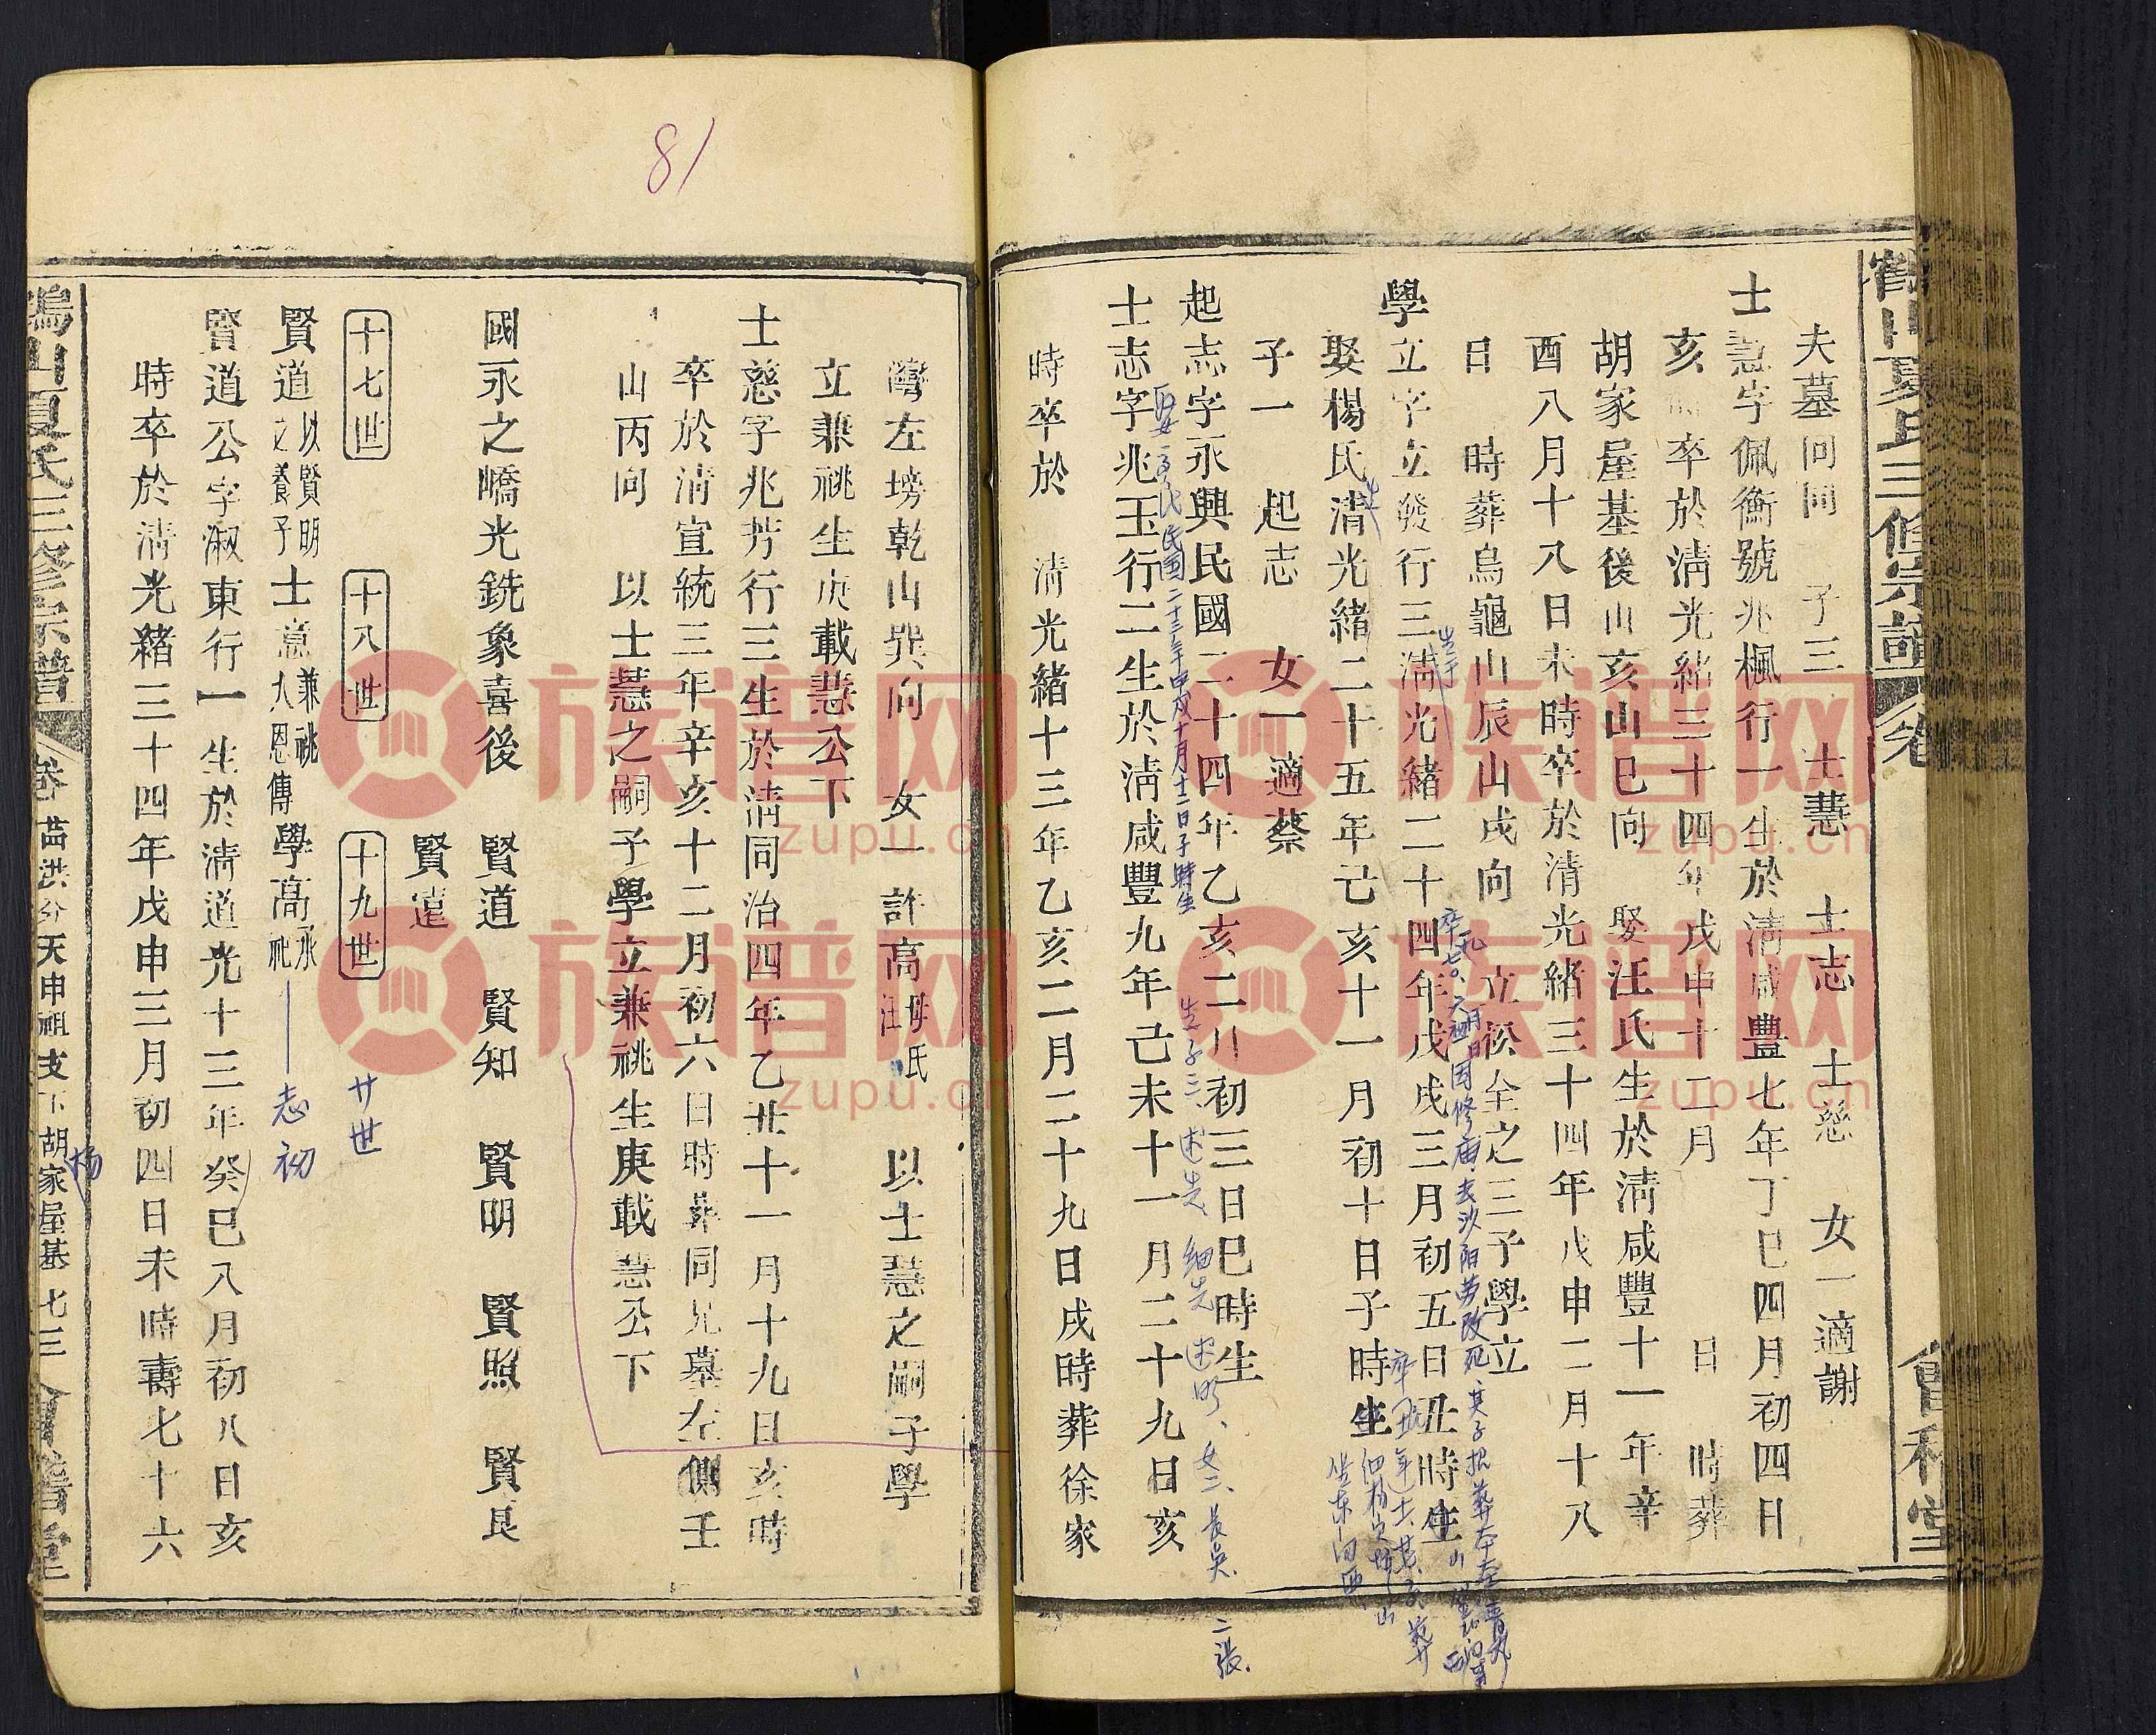 鶴山夏氏三修宗譜 卷
會稽堂
夫墓同向 子三 士慧 士志 士慈 女一適謝
士慧字佩衡號兆楓行一生於清咸豐七年丁巳四月初四日
亥 卒於清光緒三十四年戊申十二月 日 時葬
胡家屋基後山亥山巳向 娶汪氏生於清咸豐十一年辛
酉八月十八日未時卒於清光緒三十四年戊申二月十八
日 時葬烏龜山辰山戌向 立松全之三子學立
卒一九七〇、六月
日因修庙、去沙阳劳改死、其子松葬本
學立字立發行三清光緒二十四年戊戌三月初五日丑時生
生于
娶楊氏清光緒二十五年己亥十一月初十日子時生
坐东向西
子一 起志 女一適蔡
起志字永興民國二十四年乙亥二月初三日巳時生
民國二十三年甲戌十月十一日子時生
生子三、述先、细先、述明、女二、长吴、二張.
士志字兆玉行二生於清咸豐九年己未十一月二十九日亥
時卒於 清光緒十三年乙亥二月二十九日戌時葬徐家
81
灣左塝乾山巽向 女一許高 母汪氏 以士慧之嗣子學
立兼祧生庚載慧公下
士慈字兆芳行三生於清同治四年乙丑十一月十九日亥時
卒於清宣統三年辛亥十二月初六日時葬同兄墓左側壬
山丙向 以士慧之嗣子學立兼祧生庚載慧公下
國永之嶠光銑象喜後 賢道 賢知 賢明 賢照 賢良
賢遠
十七世 十八世 十九世 廿世
賢道 以賢明之養子 士意 兼祧大恩傳 學高 承祀 志初
賢道公字淑東行一生於清道光十三年癸巳八月初八日亥
時卒於清光緒三十四年戊申三月初四日未時壽七十六
鶴山夏氏三修宗譜 卷 苗洪分天申祖支下胡家屋基 七三 會稽堂
杨